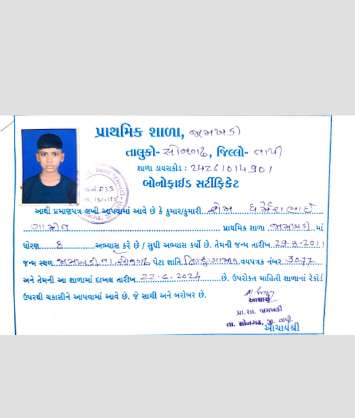 પ્રાથમિક શાળા, જામખડી
તાલુકો- સોનગઢ, જિલ્લો- તાપી
શાળા ડાયસકોડ : 24261014901
બોનોફાઈડ સર્ટીફિકેટ
આથી પ્રમાણપત્ર લખી આપવામાં આવે છે કે કુમાર/કુમારી ધર્મેશભાઈ
ગામીત પ્રાથમિક શાળા જામખડી માં
ધોરણ ૬ અભ્યાસ કરે છે / સુધી અભ્યાસ કર્યો છે. તેમની જન્મ તારીખ
જન્મ સ્થળ જામખડી તા. સોનગઢ પેટા જ્ઞાતિ વયપત્રક નંબર 3077
અને તેમની આ શાળામાં દાખલ તારીખ 22-6-2024 છે. ઉપરોકત માહિતી શાળાના રેકો
ઉપરથી ચકાસીને આપવામાં આવે છે. જે સાચી અને બરોબર છે.
આચાર્ય
પ્રા. શા. જામખડી
તા. સોનગઢ, જી. તાપી
આચાર્યશ્રી